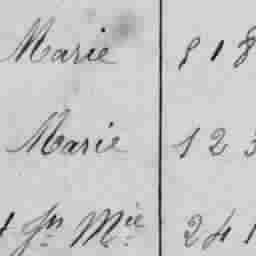 Marie 918
Marie 123
Jn Mie 241